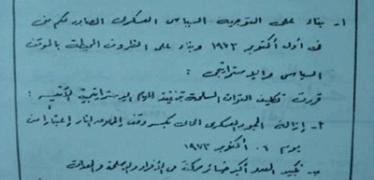 ١- بناء على التوجيه السياسى العسكرى الصادر لكم منى
فى أول أكتوبر ١٩٧٣ وبناء على الظروف المحيطة بالموقف
السياسى والاستراتيجى :
قررت تكليف القوات المسلحة بتنفيذ المهام الاستراتيجية الآتية :
٢- إزالة الجمود العسكرى الحالى بكسر وقف إطلاق النار إعتبارا من
يوم ٦ أكتوبر ١٩٧٣
تكبيد العدو أكبر خسائر ممكنة من الأفراد والأسلحة والمعدات